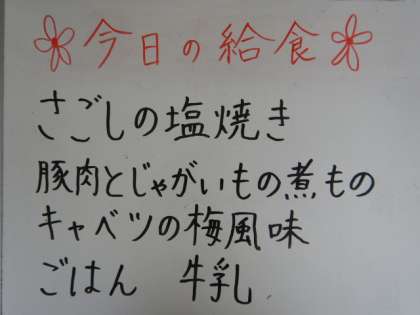 今日の給食
さごしの塩焼き
豚肉とじゃがいもの煮もの
キャベツの梅風味
ごはん　牛乳